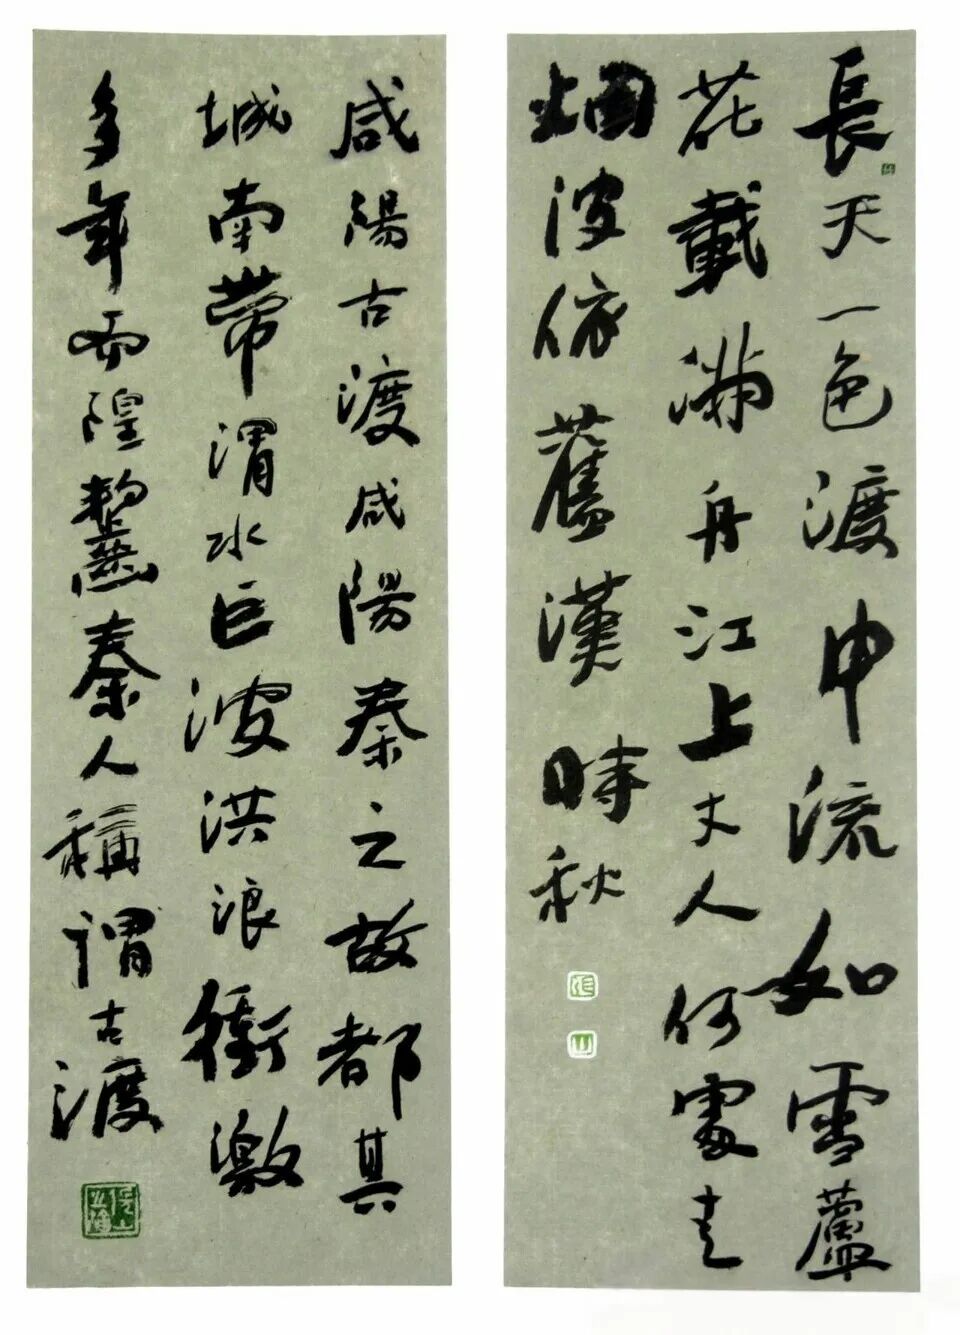 長天一色渡中流如雪蘆
花載滿舟江上丈人何處去
烟波依舊漢時秋
咸陽古渡咸陽秦之故都其
城南帶渭水巨波洪浪衝激
多年而隍塹秦人稱謂古渡